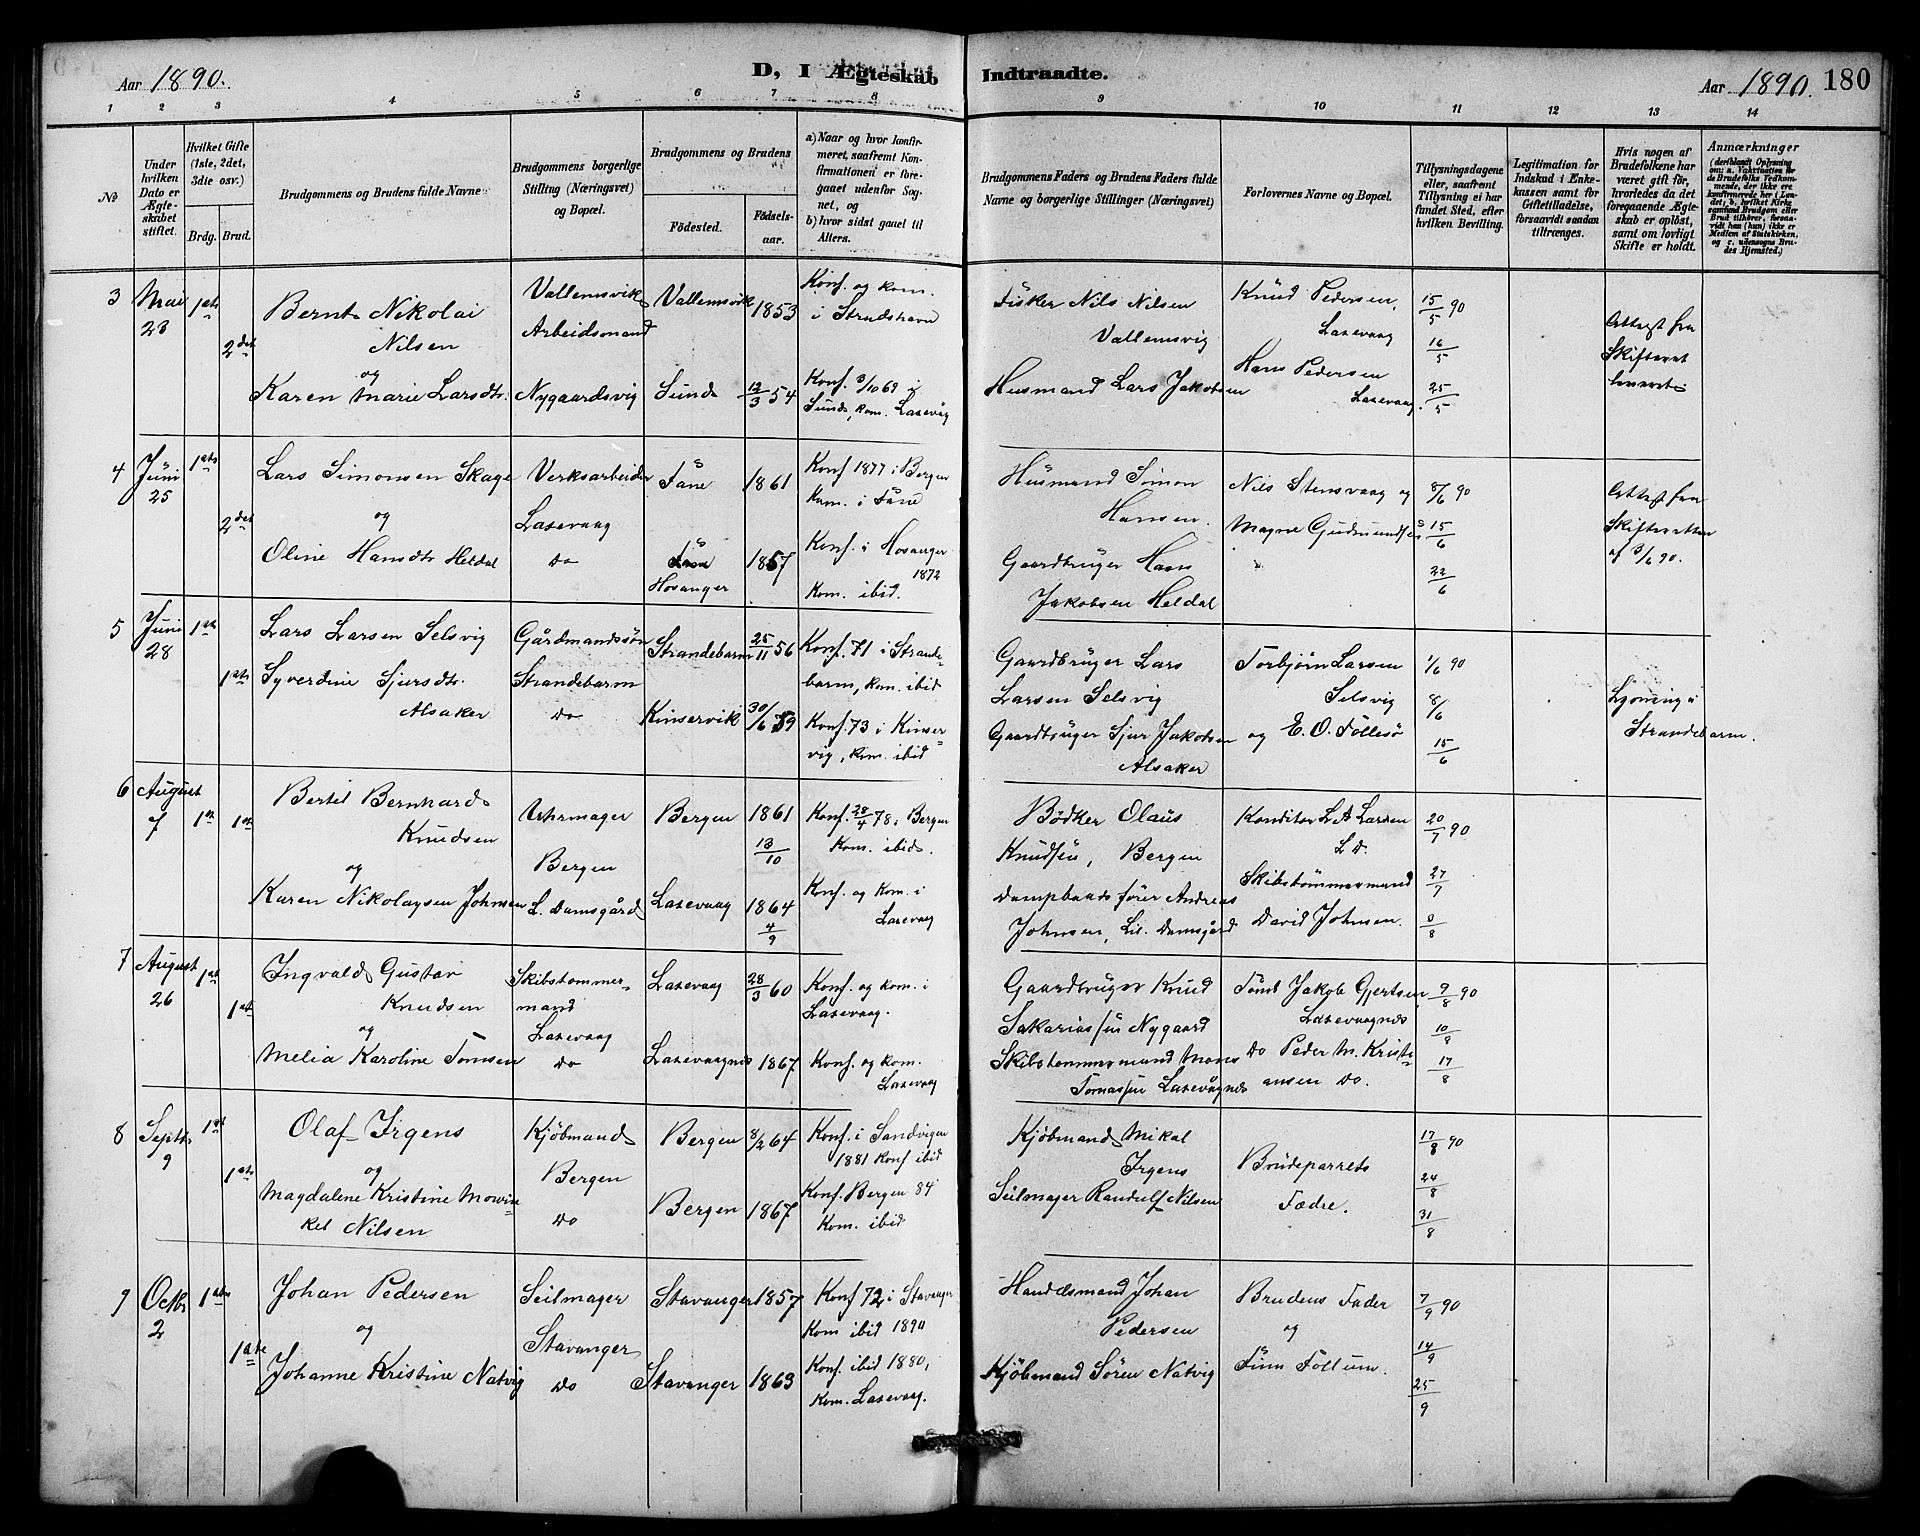 Aar 1890.
D, I Ægteskab Indtraadte.
Aar 1890. 180
1 2 3 4 5 6 7 8 9 10 11 12 13 14
No
Under hvilken Dato er Ægteskabet stiftet.
Hvilket Gifte (1ste, 2det, 3die osv.)
Brdg. Brud.
Brudgommens og Brudens fulde Navne
Brudgommens borgerlige Stilling (Næringsvei) og Bopæl.
Brudgommens og Brudens
Fødested. Fødselsaar.
a) Naar og hvor konfirmeret, saafremt Konfirmationen er foregaaet udenfor Sognet, og
b) hvor sidst gaaet til Alters.
Brudgommens Faders og Brudens Faders fulde Navne og borgerlige Stillinger (Næringsvei)
Forlovernes Navne og Bopæl.
Tillysningsdagene eller, saafremt Tillysning ei har fundet Sted, efter hvilken Bevilling.
Legitimation for Indskud i Ænkekassen samt for Giftetilladelse, forsaavidt saadan tiltrænges.
Hvis nogen af Brudefolkene har været gift før, hvorledes da det foregaaende Ægteskab er opløst, samt om lovligt Skifte er holdt.
Anmærkninger
3 Mai 23 1ste 2det
Bernt Nikolai
Nilsen
og
Karen Marie Larsdtr.
Vallemsvik
Arbeidsmand
Nygaardsvig
Vallemsvik 1853
Sund 12/3 54
Konf. og kom.
i Strudshavn
Konf. 3/10 69 i
Sund, kom. Laxevåg
Fisker Nils Nilsen
Vallemsvig
Husmand Lars Jakobsen
Knud Pedersen,
Laxevaag
Hans Pedersen
Laxevaag.
15/5 90
16/5
25/5
Attest fra
Skifteret
leveret
4 Juni 25 1ste 2det
Lars Simonsen Skage
og
Oline Hansdtr Heldal
Verksarbeider
Laxevaag
Do
Fane 1861
Hosanger 1857
Konf 1877 i Bergen
Kom. i Fane
Konf. i Hosanger
1872
Kom. ibid.
Husmand Simon
Hansen.
Gaardbruger Hans
Jakobsen Heldal
Nils Stensvaag og
Magne Gudmundsen
8/6 90
15/6
22/6
Attest fra
Skifteretten
af 3/6 90.
5 Juni 28 1ste 1ste
Lars Larsen Selsvig
Syverdine Sjursdtr.
Alsaker
Gårdmandssøn
Strandebarm
Do
Strandebarm 25/11 56
Kinservik 30/6 59
Konf. 71 i Strandebarm, kom. ibid
Konf. 73 i Kinservig, kom. ibid
Gaardbruger Lars
Larsen Selsvig
Gaardbruger Sjur Jakobsen
Alsaker
Torbjørn Larsen
Selsvig
og E. O. Follesö
1/6 90
8/6
15/6
Lysning i
Strandebarm.
6 August 7 1ste 1ste
Bertel Bernhard
Knudsen
og
Karen Nikolaysen Johnsen
Urhrmager
Bergen
L. Damsgård
Bergen 1861 13/10
Laxevaag 1864 4/9
Konf. 28/4 78 i Bergen
Kom. ibid.
Konf. og Kom. i
Laxevaag
Bødker Olaus
Knudsen, Bergen
Dampbaadsfører Andreas
Johnsen, Lil. Damsgård
Konditor L A Larsen
L D.
Skibstømmermand
David Johnsen.
20/7 90
27/7
3/8
7 August 26 1ste 1ste
Ingvald Gustav
Knudsen
og
Melia Karoline Tomsen
Skibstommermand
Laxevaag
Do
Laxevaag 28/3 60
Laxevaagnes 1867
Konf. og kom. i
Laxevaag.
Konf. og kom.
Laxevaag
Gaardbruger Knud
Sakariassen Nygaard
Skibstommermand Mons
Tomassen Laxevågnes
Tömd Jakob Gjertsen
Laxevaagnes
Do Peder M. Kristiansen Do.
9/8 90
10/8
17/8
8 Septbr 9 1ste 1ste
Olaf Irgens
og
Magdalene Kristine Mowinkel Nilsen
Kjöbmand
Bergen
Do
Bergen 8/2 64
Bergen 1867
Konf. i Sandvigen
1881 Konf ibid
Konf. Bergen 84
Kom. ibid
Kjöbmand Mikal
Irgens
Seilmager Randulf Nilsen
Brudeparrets
Fædre.
17/8 90
24/8
31/8
9 Octbr 2 1ste 1ste
Johan Pedersen
og
Johanne Kristine Natvig
Seilmager
Stavanger
Do
Stavanger 1857
Stavanger 1863
Konf 72 i Stavanger
Kom ibid 1890
Konf. ibid 1880,
Kom. Laxevaag.
Handelsmand Johan
Pedersen
Kjöbmand Sören Natvig
Brudens Fader
og
Finn Follum.
7/9 90
14/9
25/9